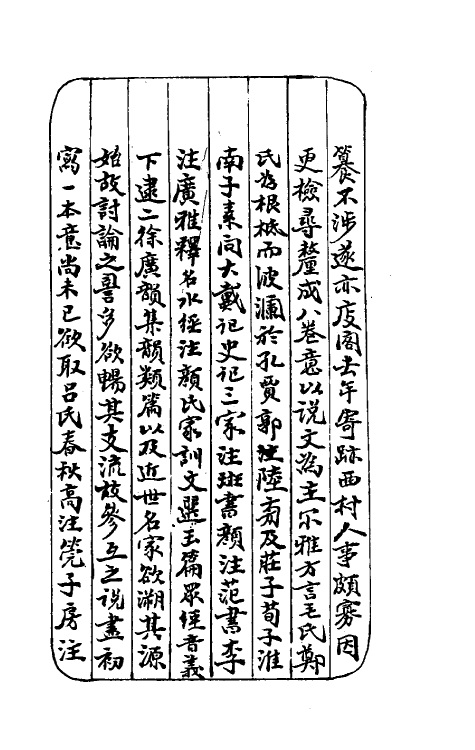 爨不涉遂亦庋阁去年寄跡西村人事頗寡因
更檢尋釐成八卷意以説文為主尔雅方言毛氏鄭
氏为根柢而波瀾於孔賈郭註陸䟽及莊子荀子淮
南子素问大戴记史记三家注班書顔注范書李
注廣雅釋名水經注顔氏家訓文選玉篇眾經音義
下逮二徐廣韻集韻類篇以及近世名家欲溯其源
始故討論之詈多欲暢其支流故參互之说盡初
寫一本意尚未已欲取吕氏春秋高注筦子房注